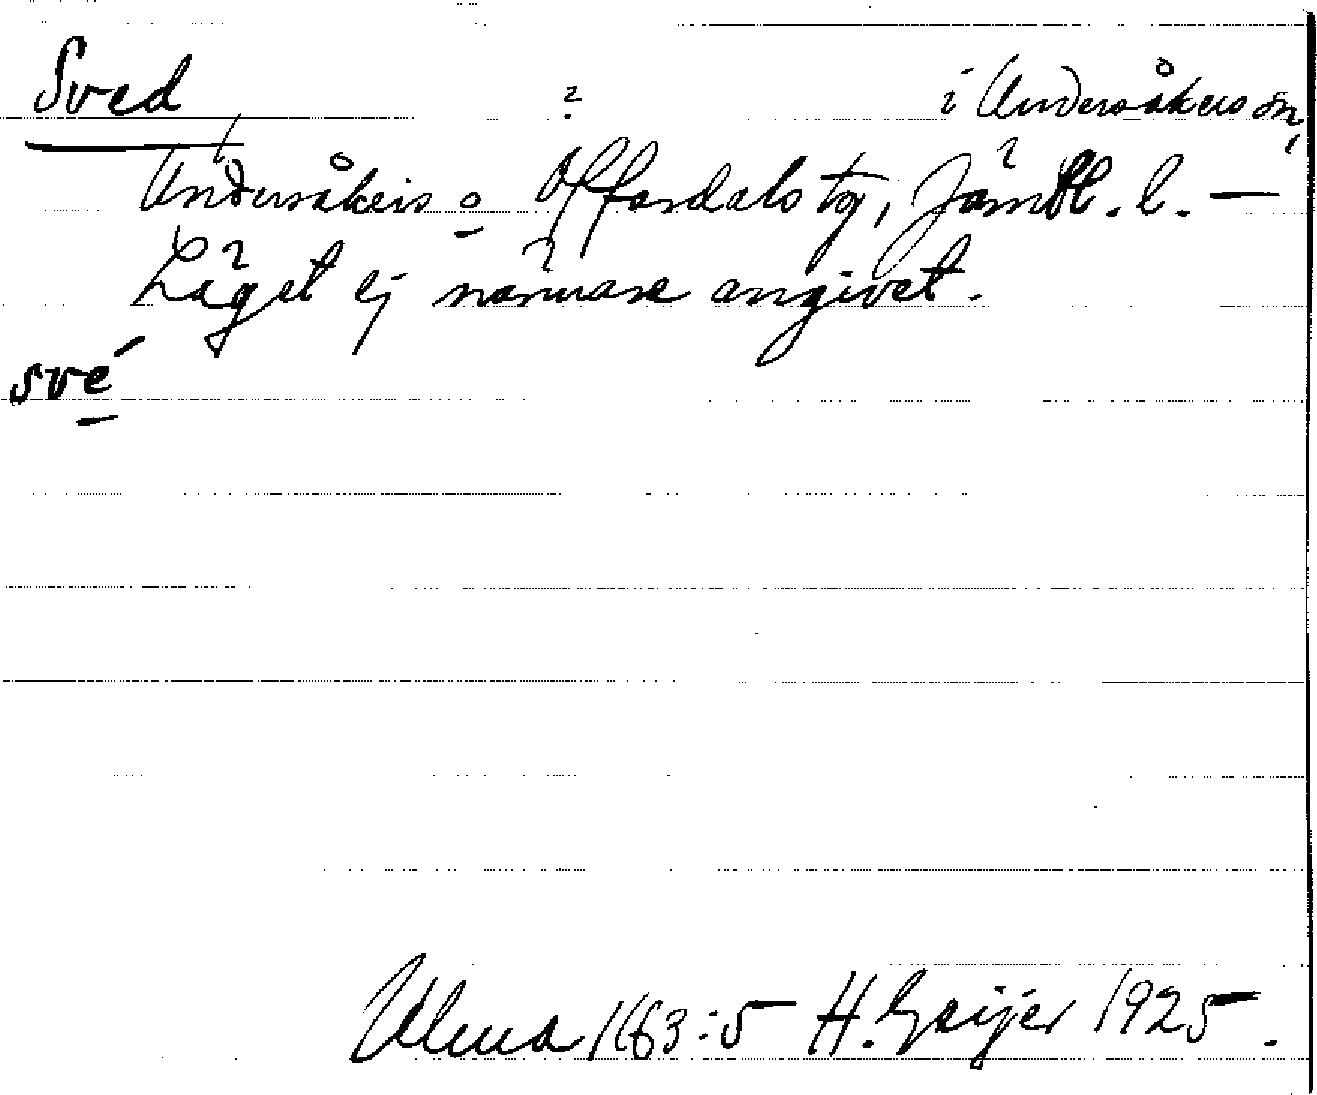 Sved ? i Undersåkers sn,
Undersåkers o Offerdals tg, Jämtl. l. —
Läget ej närmare angivet.
své
Ulma 1663:5 H. Geijer 1925.